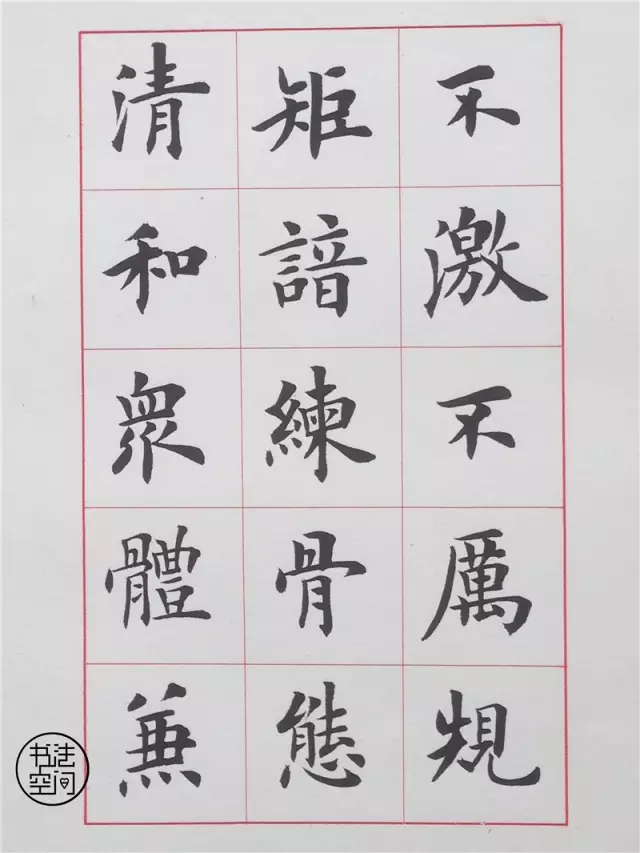 不激不厲規
矩諳練骨態
清和衆體兼
书法空间